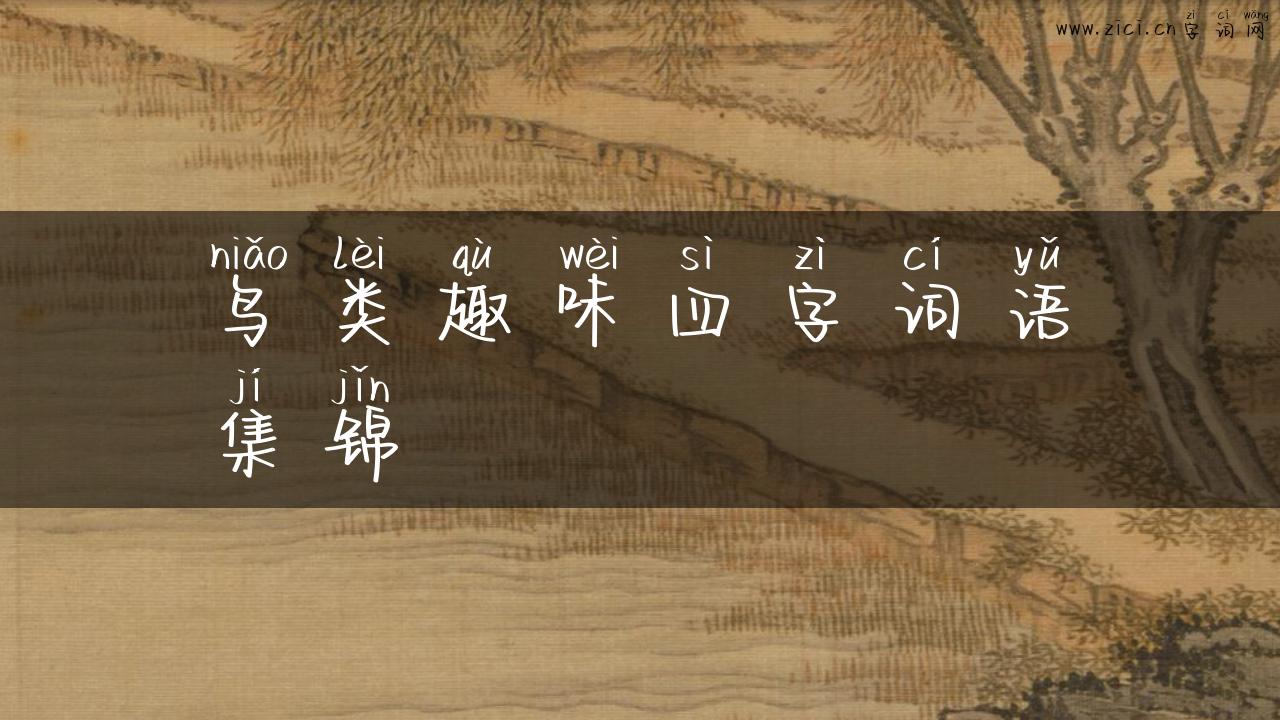 zì cí wǎng
www.zici.cn字词网
niǎo lèi qù wèi sì zì cí yǔ
鸟类趣味四字词语
jí jǐn
集锦